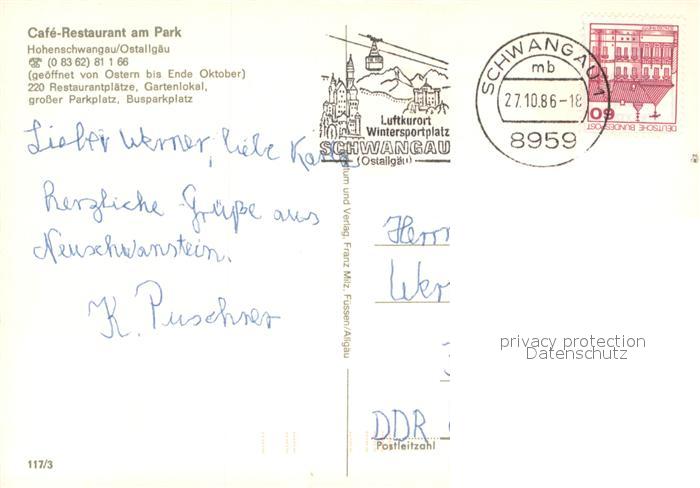 Café-Restaurant am Park
Hohenschwangau/Ostallgäu
☎ (0 83 62) 81 1 66
(geöffnet von Ostern bis Ende Oktober)
220 Restaurantplätze, Gartenlokal,
großer Parkplatz, Busparkplatz
Luftkurort
Wintersportplatz
SCHWANGAU
(Ostallgäu)
SCHWANGAU 1
mb
27.10.86-18
8959
60
DEUTSCHE BUNDESPOST
Lieber Werner, liebe
Herzliche Grüße aus
Neuschwanstein.
K. Puschner
und Verlag, Franz Milz, Füssen/Allgäu
Herrn
Wer
DDR
Postleitzahl
privacy protection
Datenschutz
117/3